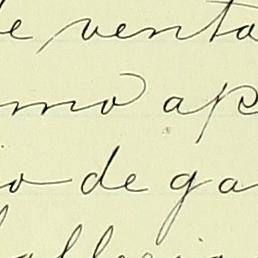 e venta
mo ap
o de ga